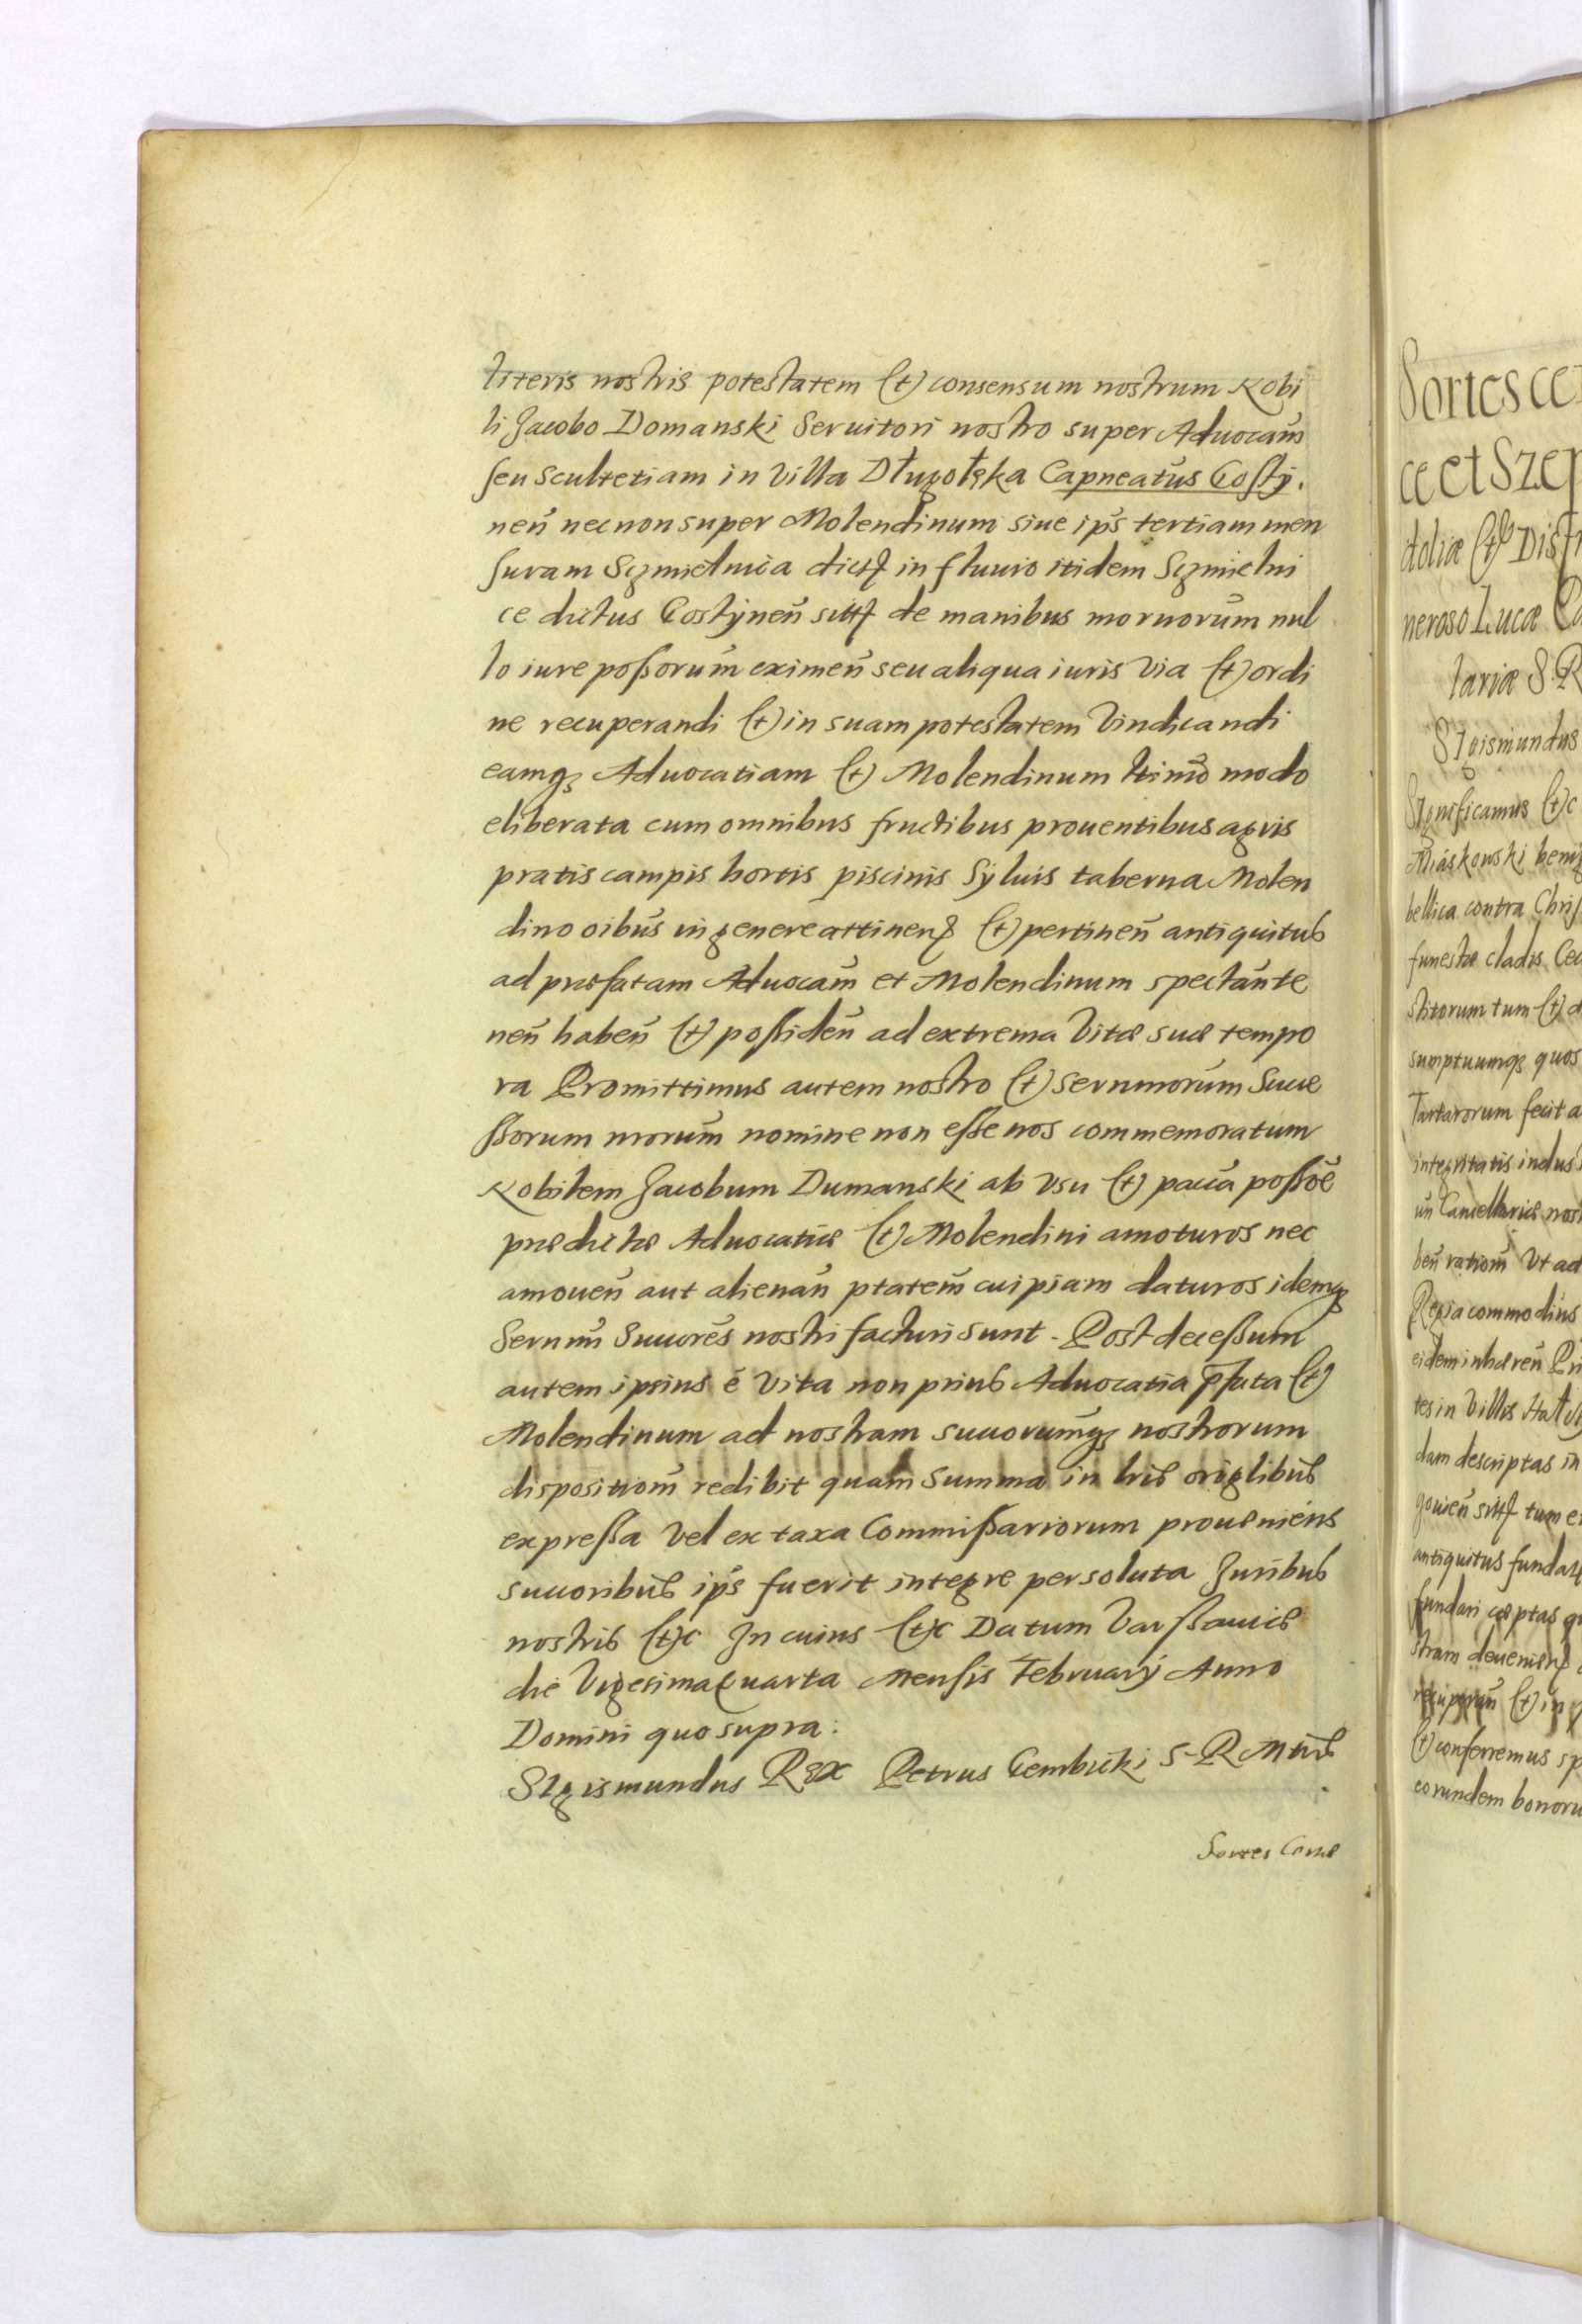 literis nostris potestatem et consensum nostrum Nobi
li Jacobo Domanski Seruitori nostro super Aduocam̃
seu Scultetiam in Villa Długołęka Capneatus Gosty.
neñ nec non super Molendinum siue ip̃s tertiam men
suram Szmielnica dict in fluuio itidem Szmielni
ce dictus Gostyneñ sitt de manibus mornorum̃ nul
lo iure possorum̃ eximeñ seu aliqua iuris via et ordi
ne recuperandi et in suam potestatem Vindicandi
eamq; Aduocatiam et Molendinum ltimo modo
eliberata cum omnibus fructibus prouentibus agris
pratis campis hortis piscinis Syluis taberna Molen
dino oibus in genere attinen et pertineñ antiquitus
ad præfatam Aduocam̃ et Molendinum spectante
neñ habeñ et possideñ ad extrema Vitæ suæ tempo
ra Promittimus autem nostro et Sernmorum̃ Succe
ssorum nrorum̃ nomine non esse nos commemoratum
Nobilem Jacobum Dumanski ab vsu et paca possoe
prædictæ Aduocatiæ et Molendini amoturos nec
amoueñ aut alienañ ptatem̃ cuipiam daturos idemq;
Sernmi Succores nostri facturi sunt. Post decessum
autem ipsius è vita non prius Aduocatia p̃fata et
Molendinum ad nostram succorumq; nostrorum
dispositiom̃ redibit quam summa in lris origlibus
expressa vel ex taxa Commissariorum proueniens
succoribus ip̃s fuerit integre persoluta Juribus
nostris etc In cuius etc Datum Varssauiæ
die Vigesima quarta Mensis February Anno
Domini quo supra.
Sigismundus Rex Petrus Gembicki S. R. Mtis
Sortes Cerne
Sortes ce
ce et Szep
doliæ et Dist
neroso Lucæ Ca
lariæ S. R
Sigismundus
Significamus etc
Miáskowski benig
bellica contra Chris
funestæ cladis Cec
stitorum tum et d
sumptuumq; quos
Tartarorum fecit a
integritatis indus
un Cancellariæ nost
beñ ratiom̃ Vt ad
Regia commodius
eidem inhæreñ Pri
tes in Villis
dam descriptas in
sitt tum e
antiquitus fundat
fundari cæptas qu
stram deuenien
recuperañ et in p
et conferremus sp
eorundem bonoru